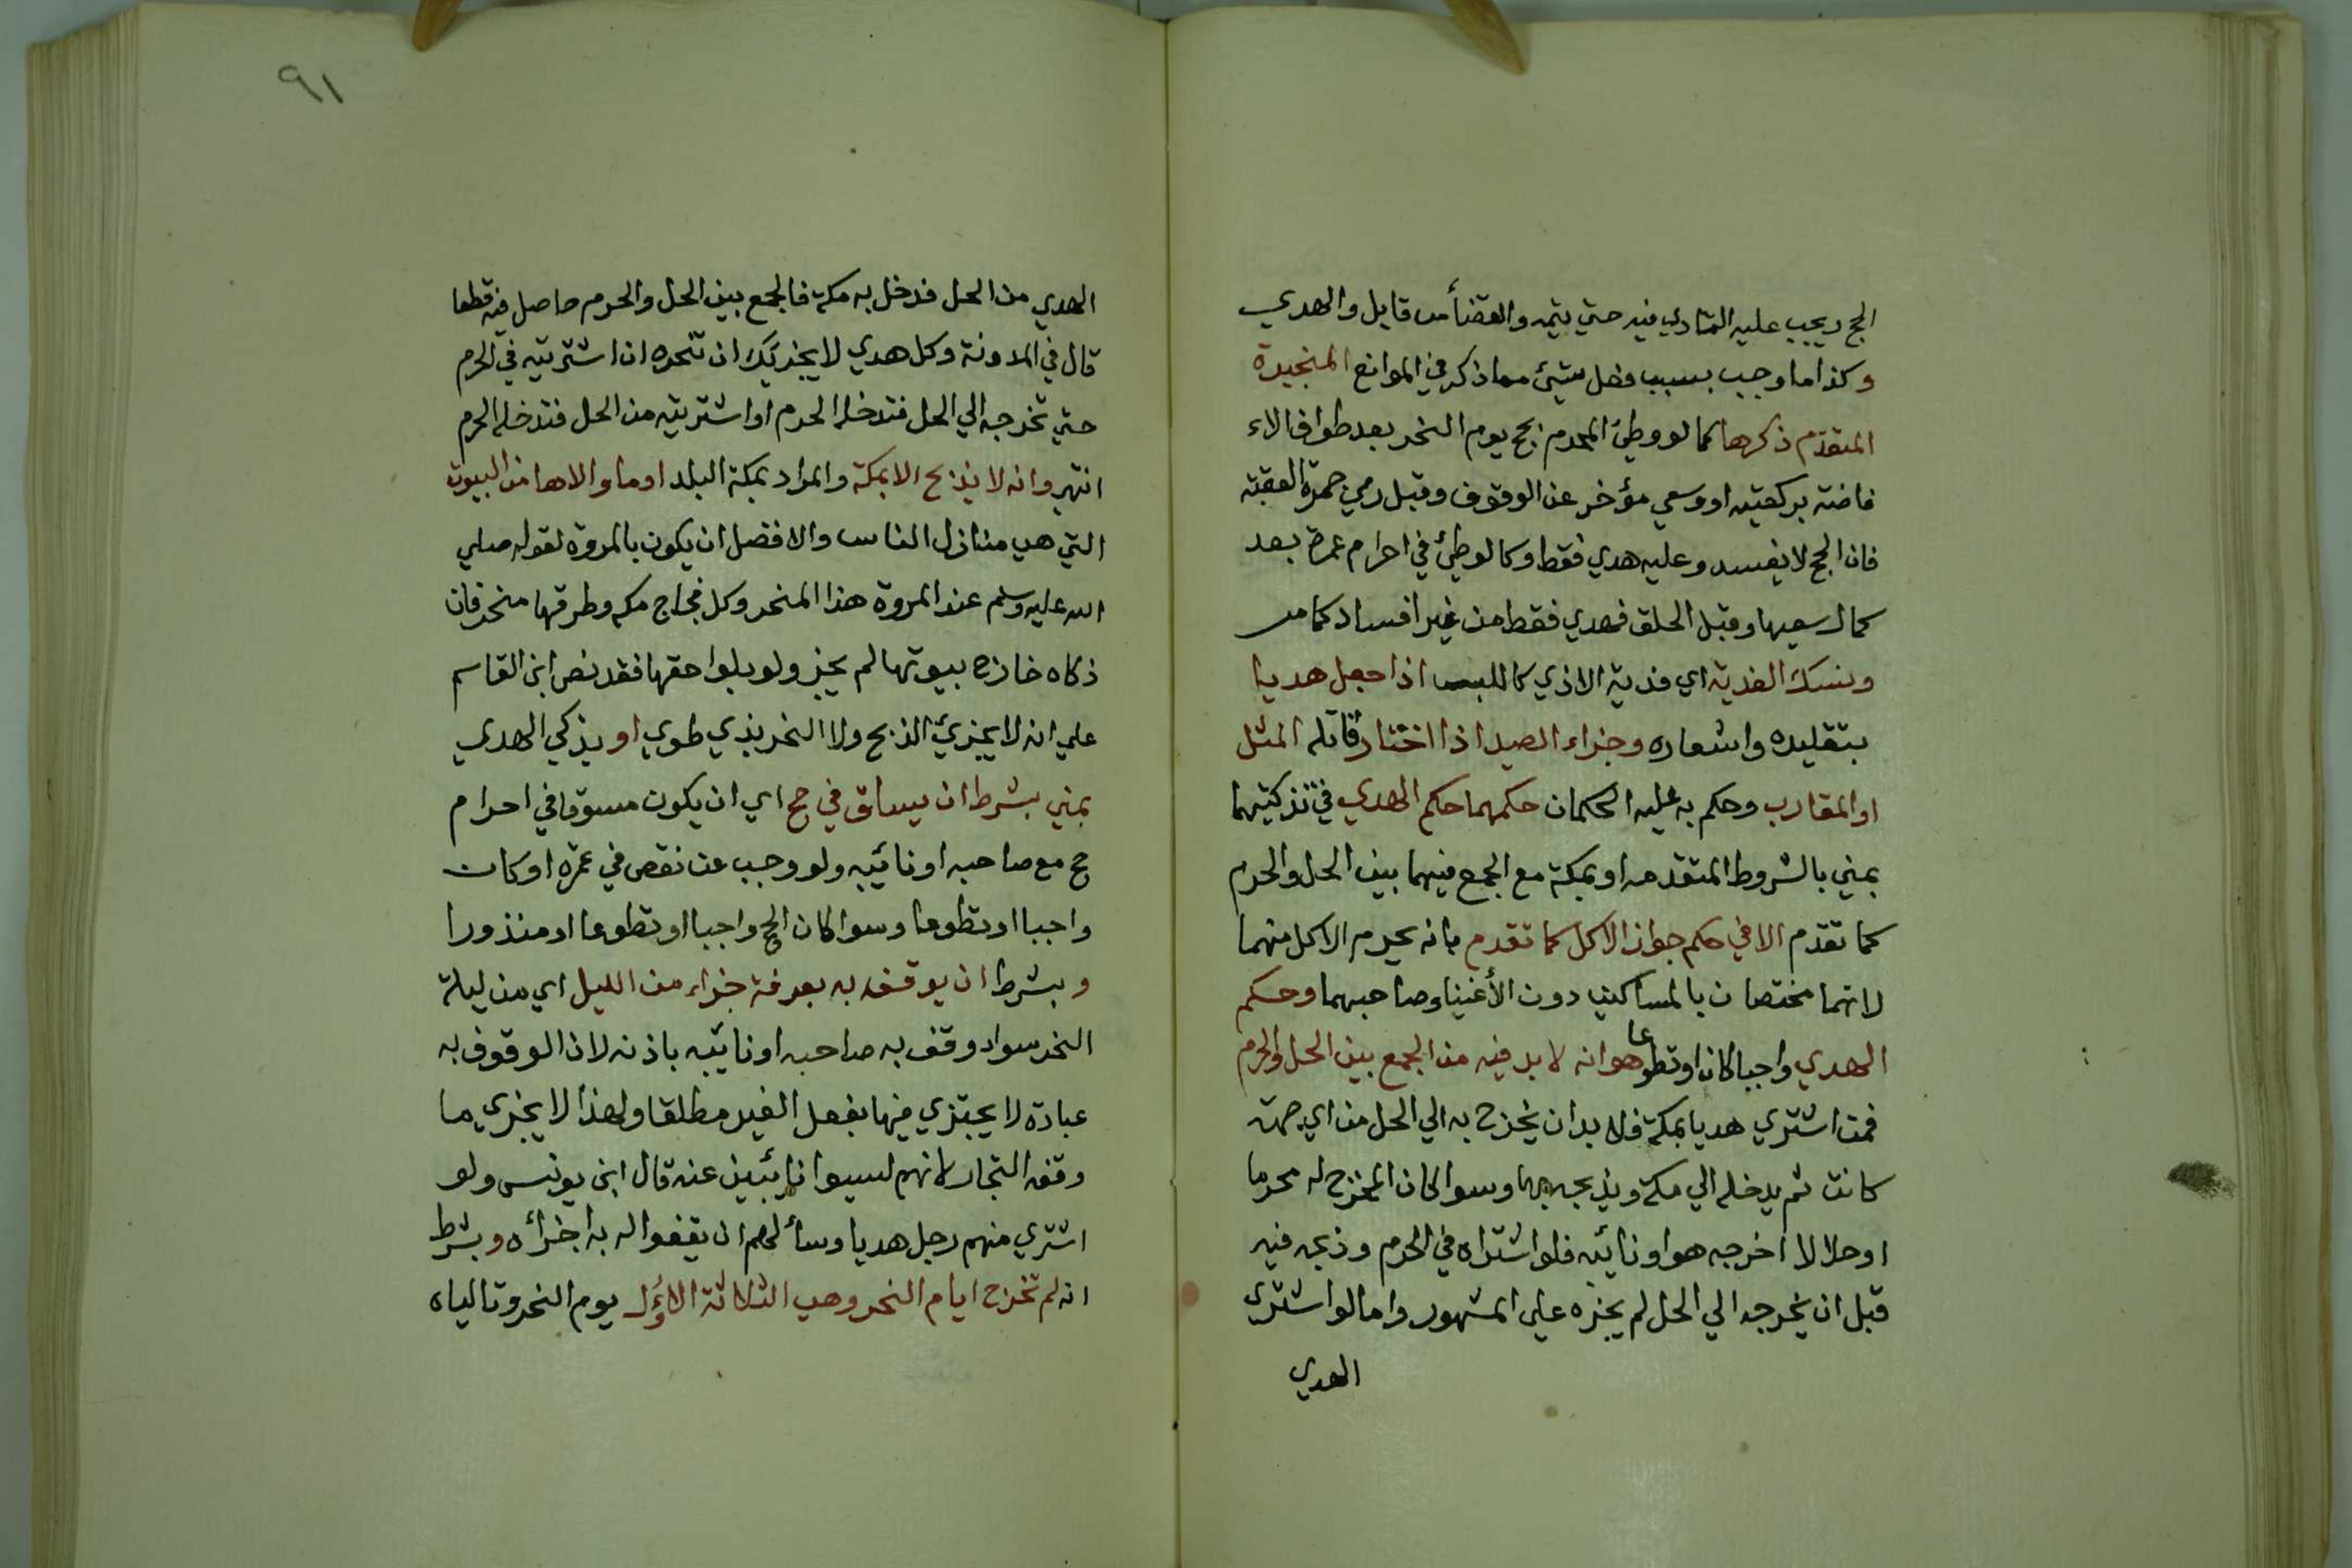 الحج ويجب عليه التمادي فيه حتي يتمه والقضأ من قابل والهدي
وكذا ما وجب بسبب فعل شيئ مما ذكر في الموانع المنجبرة
المتقدم ذكرها كما لو وطئ المحرم بحج يوم النحر بعد طواف الاء
فاضته بركعتيه او وسعي مؤخر عن الوقوف وقبل رمي جمرة العقبة
فان الحج لا يفسد وعليه هدي فقط وكما لو طئ في احرام عمرة بعد
كمال سعيها وقبل الحلق فهدي فقط من غير افساد كما مر
ونسك الفدية اي فدية الاذي كاللبس اذا جعل هديا
بتقليده واشعاره وجزاء الصيد اذا اختار قاتله المثل
او المقارب وحكم به عليه الحكمان حكمهما حكم الهدي في تذكيتهما
بمني بالشروط المتقدمه او بمكة مع الجمع فيهما بين الحل والحرم
كما تقدم الا في حكم جواز الاكل كما تقدم بانه يحرم الاكل منهما
لانهما مختصان بالمساكين دون الأغنيا وصاحبهما وحكم
الهدي واجبا كان او تطوعا هو انه لا بد فيه من الجمع بين الحل والحرم
فمن اشتري هديا بمكة فلا بد ان يخرج به الي الحل من اي جهة
كانت ثم يدخله الي مكة ويذبحه بها وسوا كان المخرج له محرما
او حلالا اخرجه هو او نائبه فلو اشتراه في الحرم وذبحه فيه
قبل ان يخرجه الي الحل لم يجزه علي المشهور واما لو اشتري
الهدي
٩١
الهدي من الحل فدخل به مكة فالجمع بين الحل والحرم حاصل فيه قطعا
قال في المدونة وكل هدي لا يجزيك ان تنحره ان اشتريته في الحرم
حتي تخرجه الي الحل فتدخله الحرم او اشتريته من الحل فتدخله الحرم
انتهي وانه لا يذبح الا بمكة والمراد بمكة البلد او ما والاها من البيوت
التي هي منازل الناس والافضل ان يكون بالمروة لقوله صلي
الله عليه وسلم عند المروة هذا المنحر وكل فجاج مكه وطرقها منحر فان
ذكاه خارج بيوتها لم يجز ولو بلواحقها فقد نص ابن القاسم
علي انه لا يجزئ الذبح ولا النحر بذي طوي او يذكي الهدي
بمني بشرط ان يساق في حج اي ان يكون مسوقا في احرام
حج مع صاحبه او نائبه ولو وجب عن نقص في عمرة او كان
واجبا او تطوعا وسوا كان الحج واجبا او تطوعا او منذورا
وبشرط ان يوقف به بعرفة جزاء من الليل اي من ليلة
النحر سوا وقف به صاحبه او نائبه باذنه لان الوقوف به
عبادة لا يجتزي فيها بفعل الغير مطلقا ولهذا لا يجزي ما
وقفه التجار لانهم ليسوا نائبين عنه قال ابن يونس ولو
اشتري منهم رجل هديا وسألهم ان يقفوا له به اجزأه وبشرط
انه لم تخرج ايام النحر وهي الثلاثة الاؤل يوم النحر وتالياه